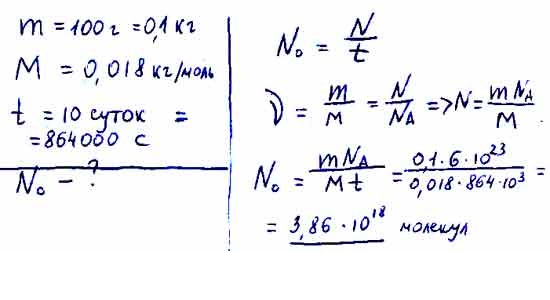 m = 100 г = 0,1 кг
M = 0,018 кг/моль
t = 10 суток =
= 864000 с
N₀ - ?
N₀ = N/t
ν = m/M = N/N_A => N = mN_A/M
N₀ = mN_A/Mt = 0,1·6·10²³/0,018·864·10³ =
= 3,86·10¹⁸ молекул